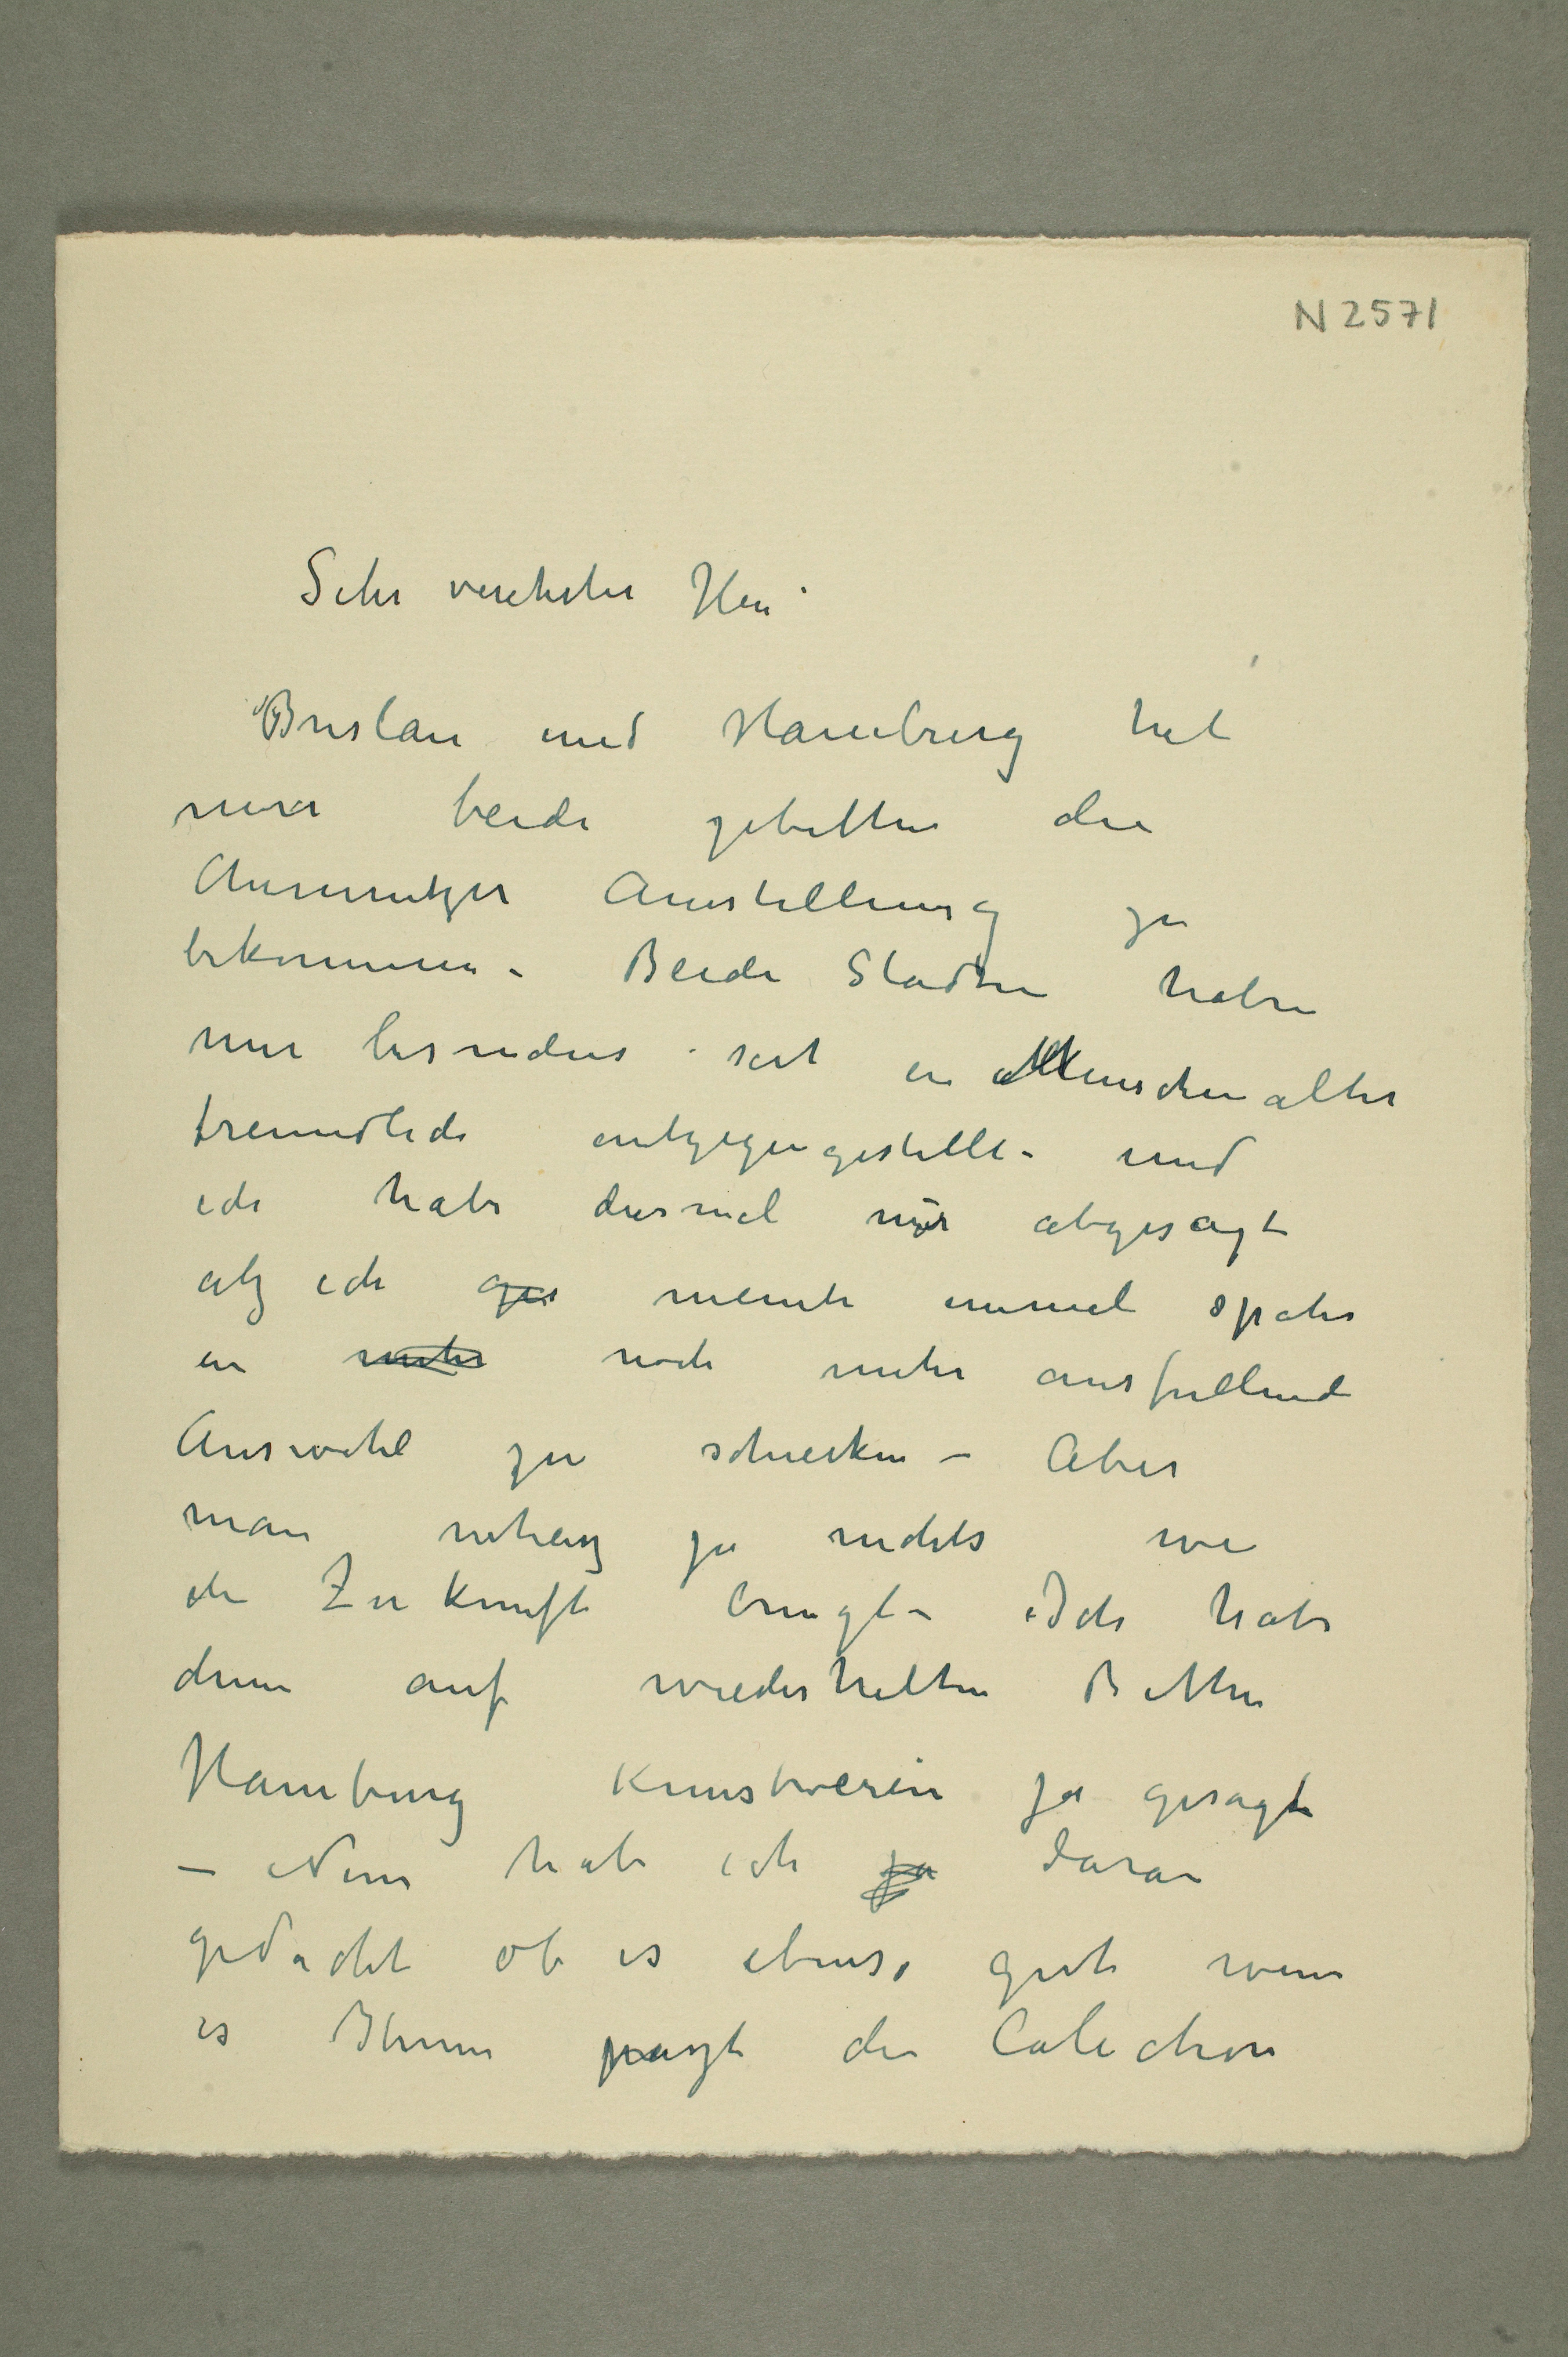 N 2571
Sehr verehrter Herr
Breslau und Hamburg hat
mir beide gebitten die
Chemnitzer Ausstellung zu
bekommen – Beide Städten haben
mir besonders seit ein Menschenalter
freundlich entgegengestellt – und
ich habe diesmal nur abgesagt
als ich meinte einmal später
ein noch mehr ausfüllend
Auswahl zu schicken – Aber
man ja nichts wie
die Zukunft bringt – Ich habe
denn auf wiederholten Bitten
Hamburg Kunstverein ja gesagt
– Nun habe ich ja daran
gedacht ob es ebenso gut wenn
es Ihnen paszt die Colection